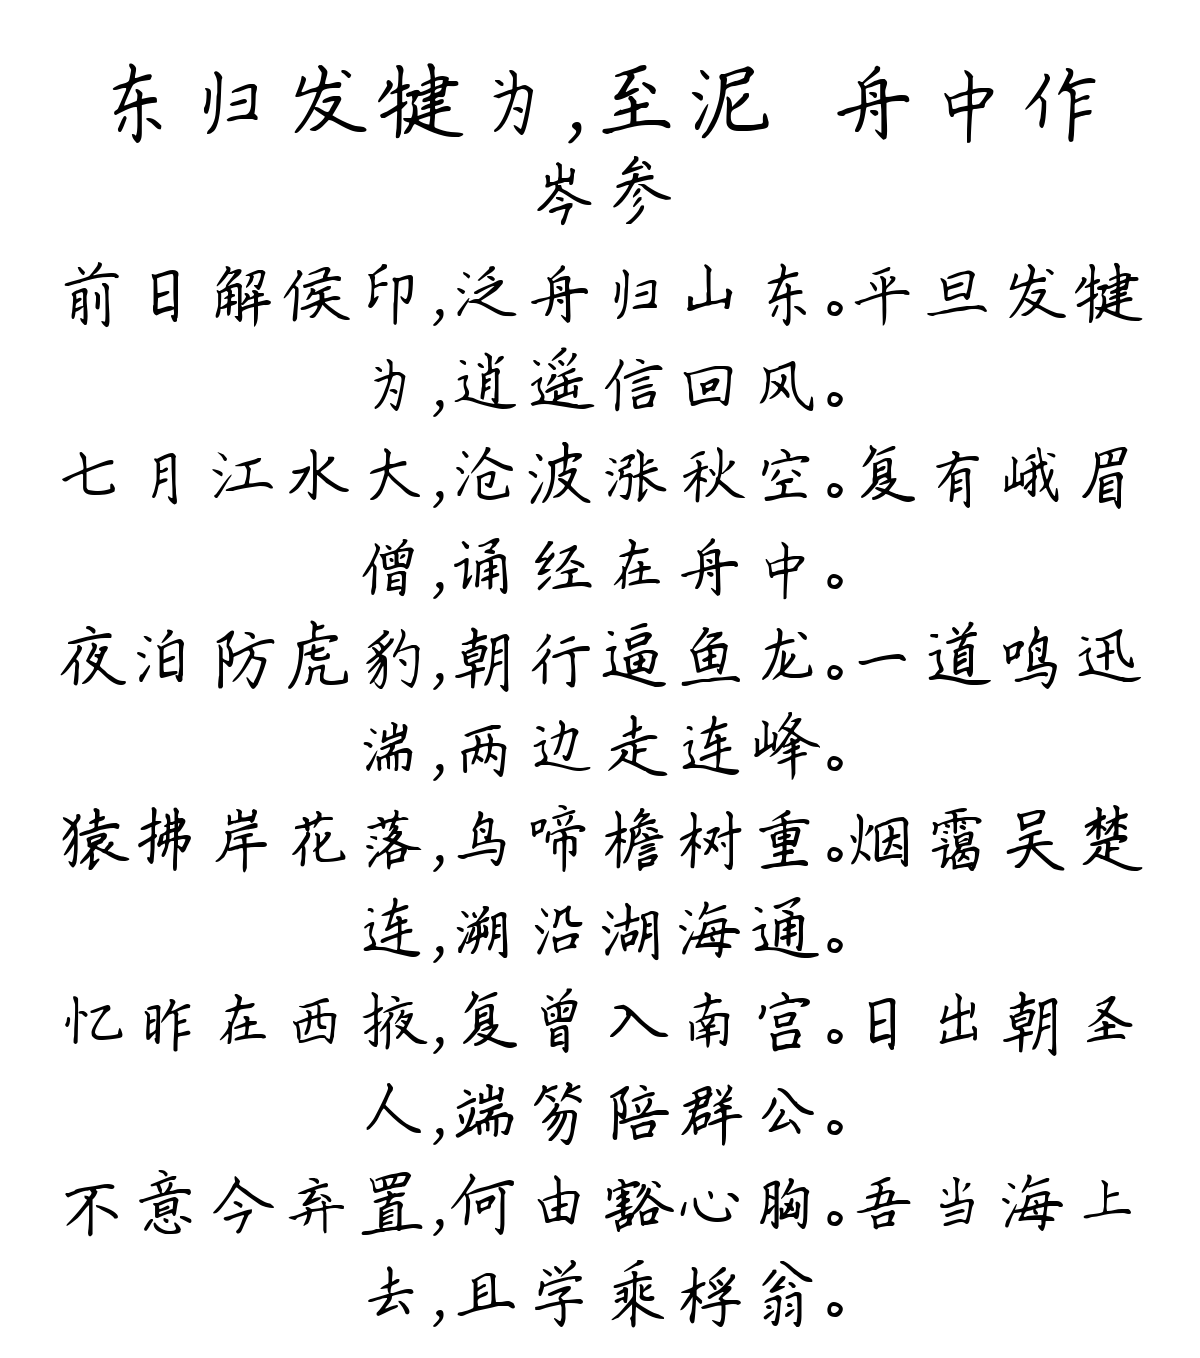 东归发犍为,至泥 舟中作
岑参
前日解侯印,泛舟归山东。平旦发犍
为,逍遥信回风。
七月江水大,沧波涨秋空。复有峨眉
僧,诵经在舟中。
夜泊防虎豹,朝行逼鱼龙。一道鸣迅
湍,两边走连峰。
猿拂岸花落,鸟啼檐树重。烟霭吴楚
连,溯沿湖海通。
忆昨在西掖,复曾入南宫。日出朝圣
人,端笏陪群公。
不意今弃置,何由豁心胸。吾当海上
去,且学乘桴翁。